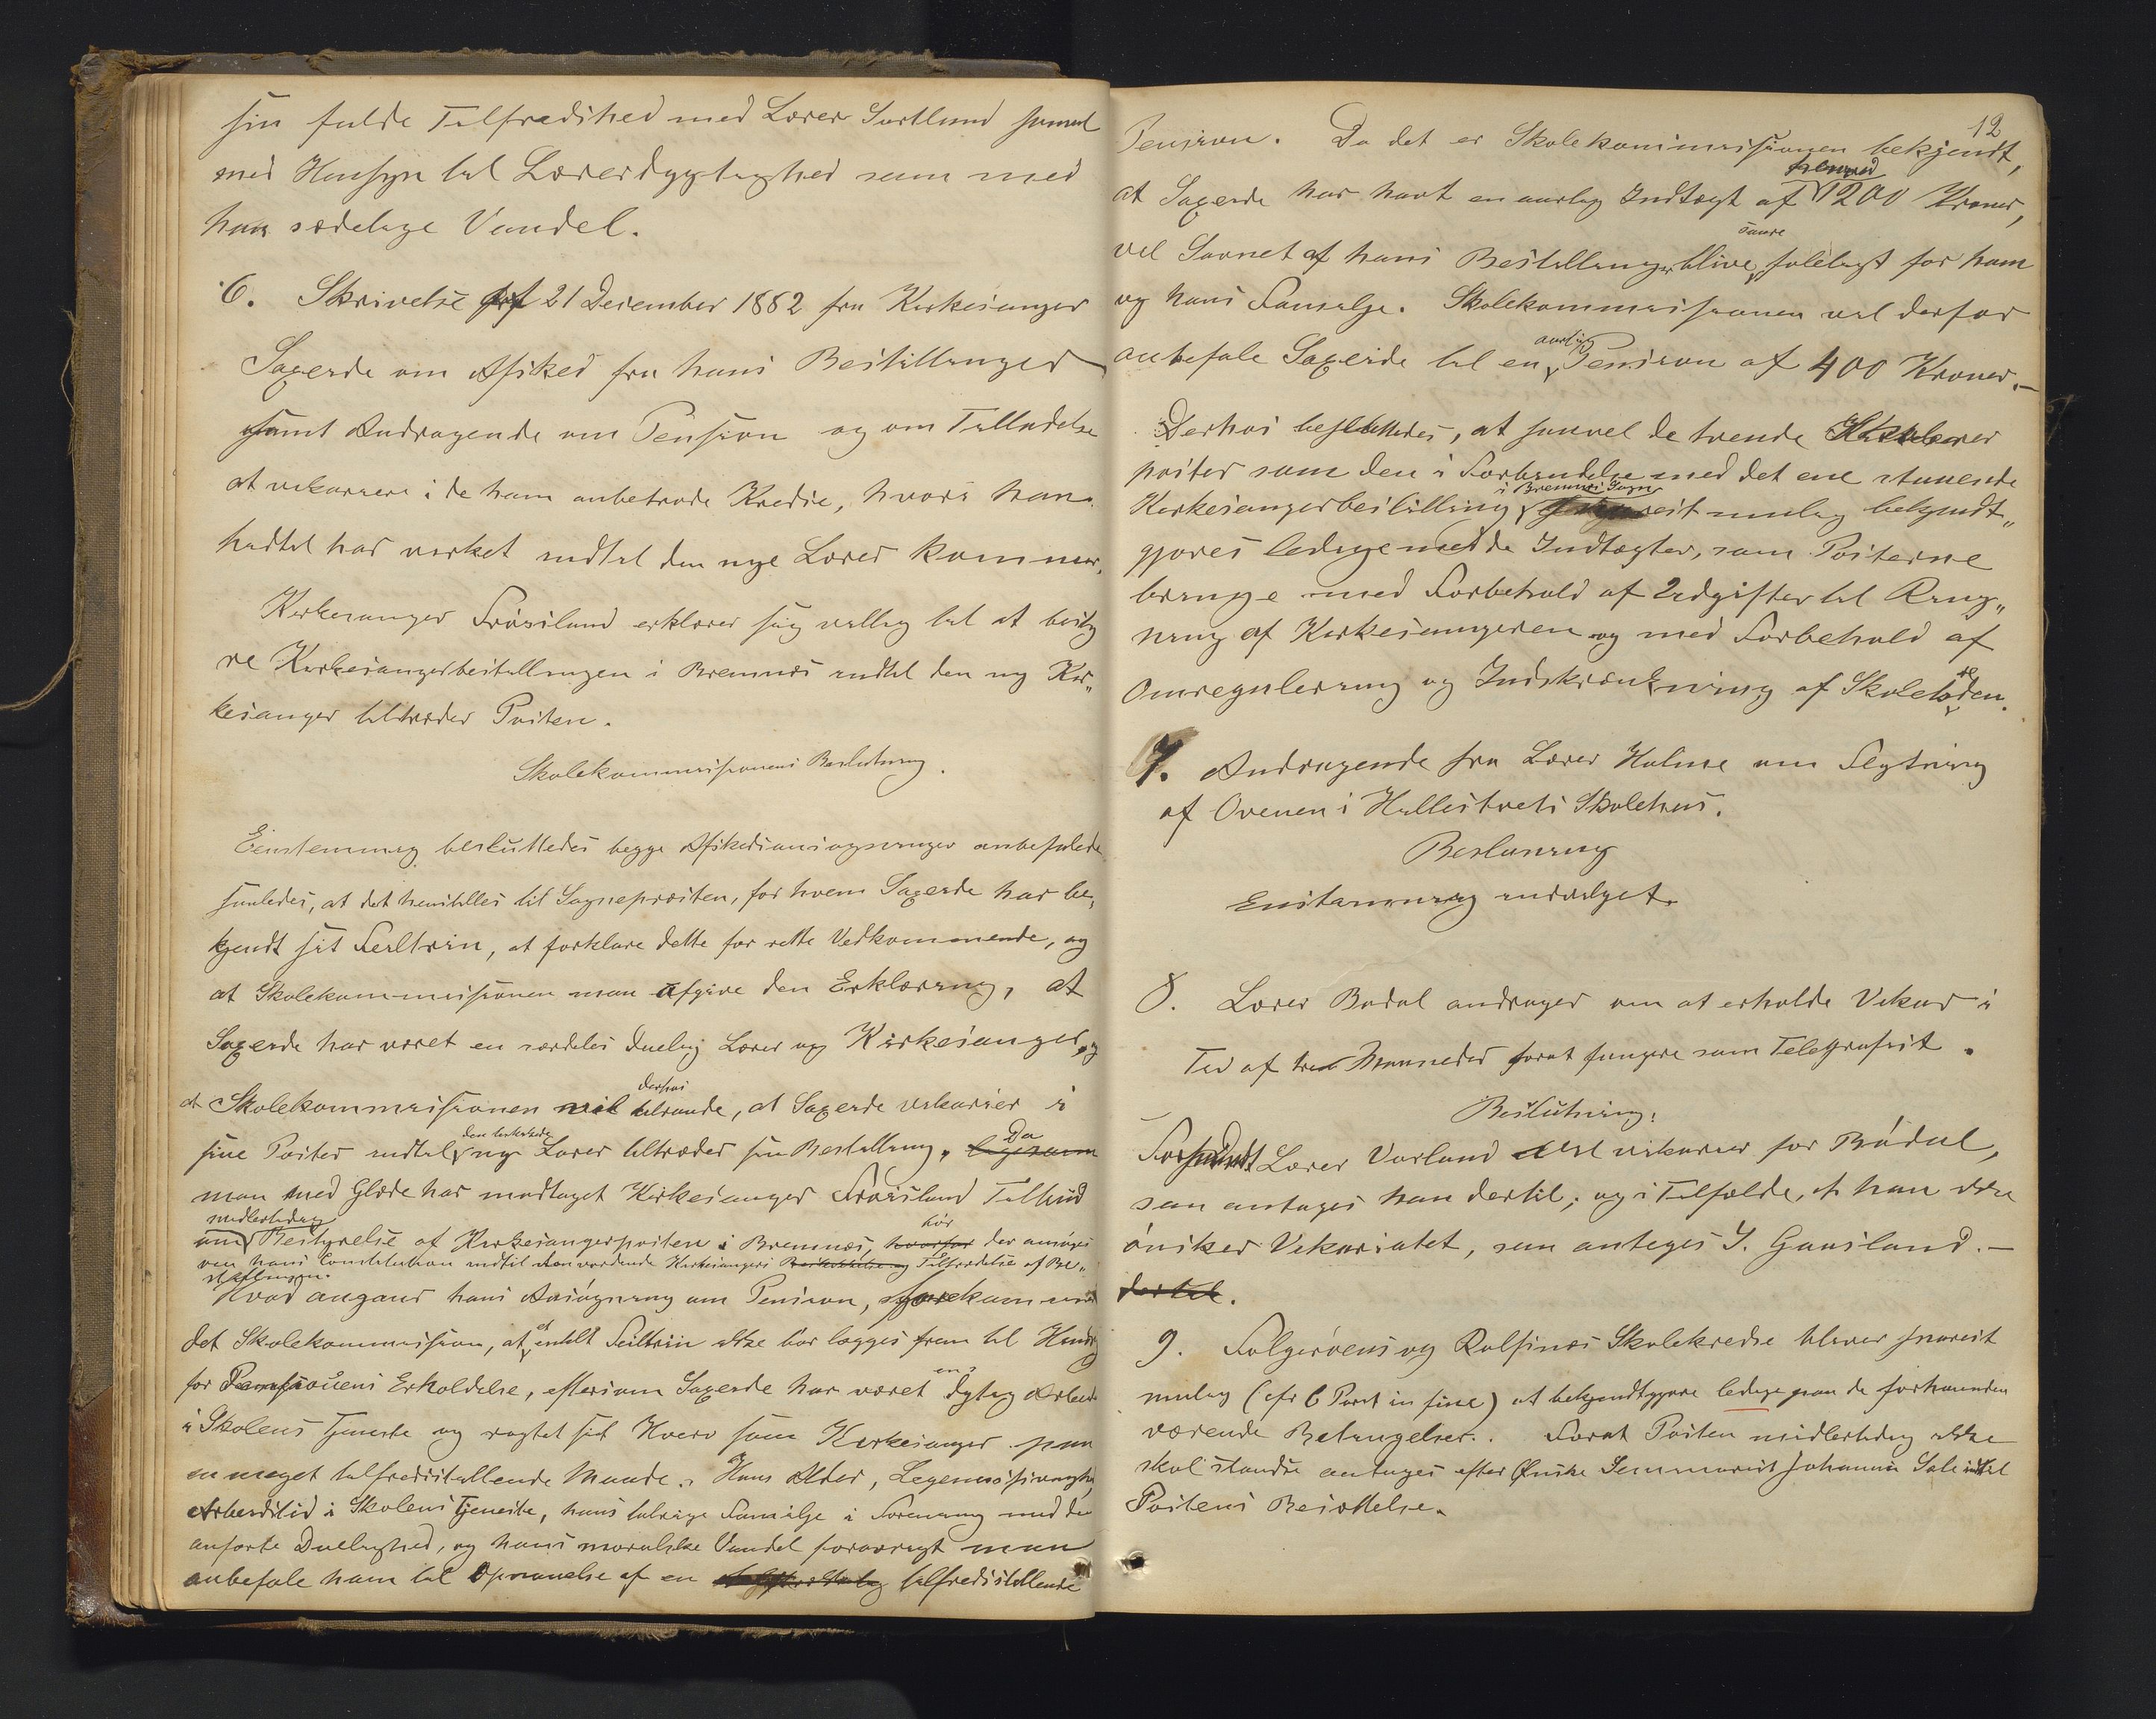 sin fulde Tilfredshed med Lærer Sortland saavel
med Hensyn til Lærerdygtighed som med
hans sædelige Vandel.
6. Skrivelse af 21 December 1882 fra Kirkesanger
Saxeide om Afsked fra hans Bestillinger
samt Andragende om Pension og om Tilladelse
at vikariere i de ham anbetrode Kredse, hvori han
hidtil har virket indtil den nye Lærer kommer.
Kirkesanger Frøisland erklærer sig villig til at besty
re Kirkesangerbestillingen i Bremnes indtil den ny Kir„
kesanger tiltræder Posten.
Skolekommissionens Beslutning.
Eenstemmig besluttedes begge Afskedsansøgninger anbefalede
saaledes, at det henstilles til Sognepræsten, for hvem Saxeide har be„
kjendt sit Feiltrin, at forklare dette for rette Vedkommende, og
at Skolekommissionen maa afgive den Erklæring, at
Saxeide har været en særdeles duelig Lærer og Kirkesanger, og
at Skolekommissionen vil derhos tilraade, at Saxeide vikarier i
sine Poster indtil den beskikkede ny Lærer tiltræder sin Bestilling, ligesom Da
man med Glæde har modtaget Kirkesanger Frøisland Tilbud
om midlertidig Bestyrelse af Kirkesangerposten i Bremnes, hvorfor bør der ansøges
om hans Constitution indtil den vordende Kirkesangers Beskikkelse og Tiltrædelse af Be„
stillingen.
Hvad angaar hans Ansøgning om Pension, forekommer
det Skolekommission, at et enkelt Feiltrin ikke bør lægges frem til Hindr
for Pensionens Erholdelse, eftersom Saxeide har været en dygtig Arbeider
i Skolens Tjeneste og røgtet sit Hverv som Kirkesanger paa
en meget tilfredsstillende Maade. Hans Alder, Legemssvaghed,
Arbeidstid i Skolens Tjeneste, hans talrige Familje i Forening med den
anførte Duelighed, og hans moralske Vandel forøvrigt maa
anbefale ham til Opnaaelse af en tilfredsstillende
12
Pension. Da det er Skolekommissionen bekjendt,
at Saxeide har havt en aarlig Indtægt af henved 1200 Kroner,
vil Savnet af hans Bestillinger blive saare føleligt for ham
og hans Familje. Skolekommissionen vil derfor
anbefale Saxeide til en aarlig Pension af 400 Kroner.—
Derhos besluttedes, at saavel de tvende Skolelærer
poster som den i Forbindelse med det ene staaende
Kirkesangerbestilling i Bremnes Sogn snarest mulig bekjendt„
gjøres ledige med de Indtægter, som Posterne
bringe med Forbehold af Udgifter til Ring„
ning af Kirkesangeren og med Forbehold af
Omregulering og Indskrænkning af Skoletiden.
7. Andragende fra Lærer Holme om Flytning
af Ovenen i Hallestvets Skolehus.
Beslutning
Enstemmig indvilget.
8. Lærer Bødal andrager om at erholde Vikar i
Tid af tre Maaneder forat fungere som Telegrafist.
Beslutning:
Forsaavidt Lærer Vorland vil vikariere for Bødal,
saa antages han dertil; og i Tilfælde, at han ikke
ønsker Vikariatet, saa antages I. Gaasland.—
dertil.
9. Folgerøens og Rolfsnes Skolekredse bliver snarest
mulig (cfr 6 Post in fine) at bekjendtgjøre ledige paa de forhaanden
værende Betingelser. Forat Posten midlertidig ikke
skal standse antages efter Ønske Seminarist Johannes Sele indtil
Postens Besættelse.